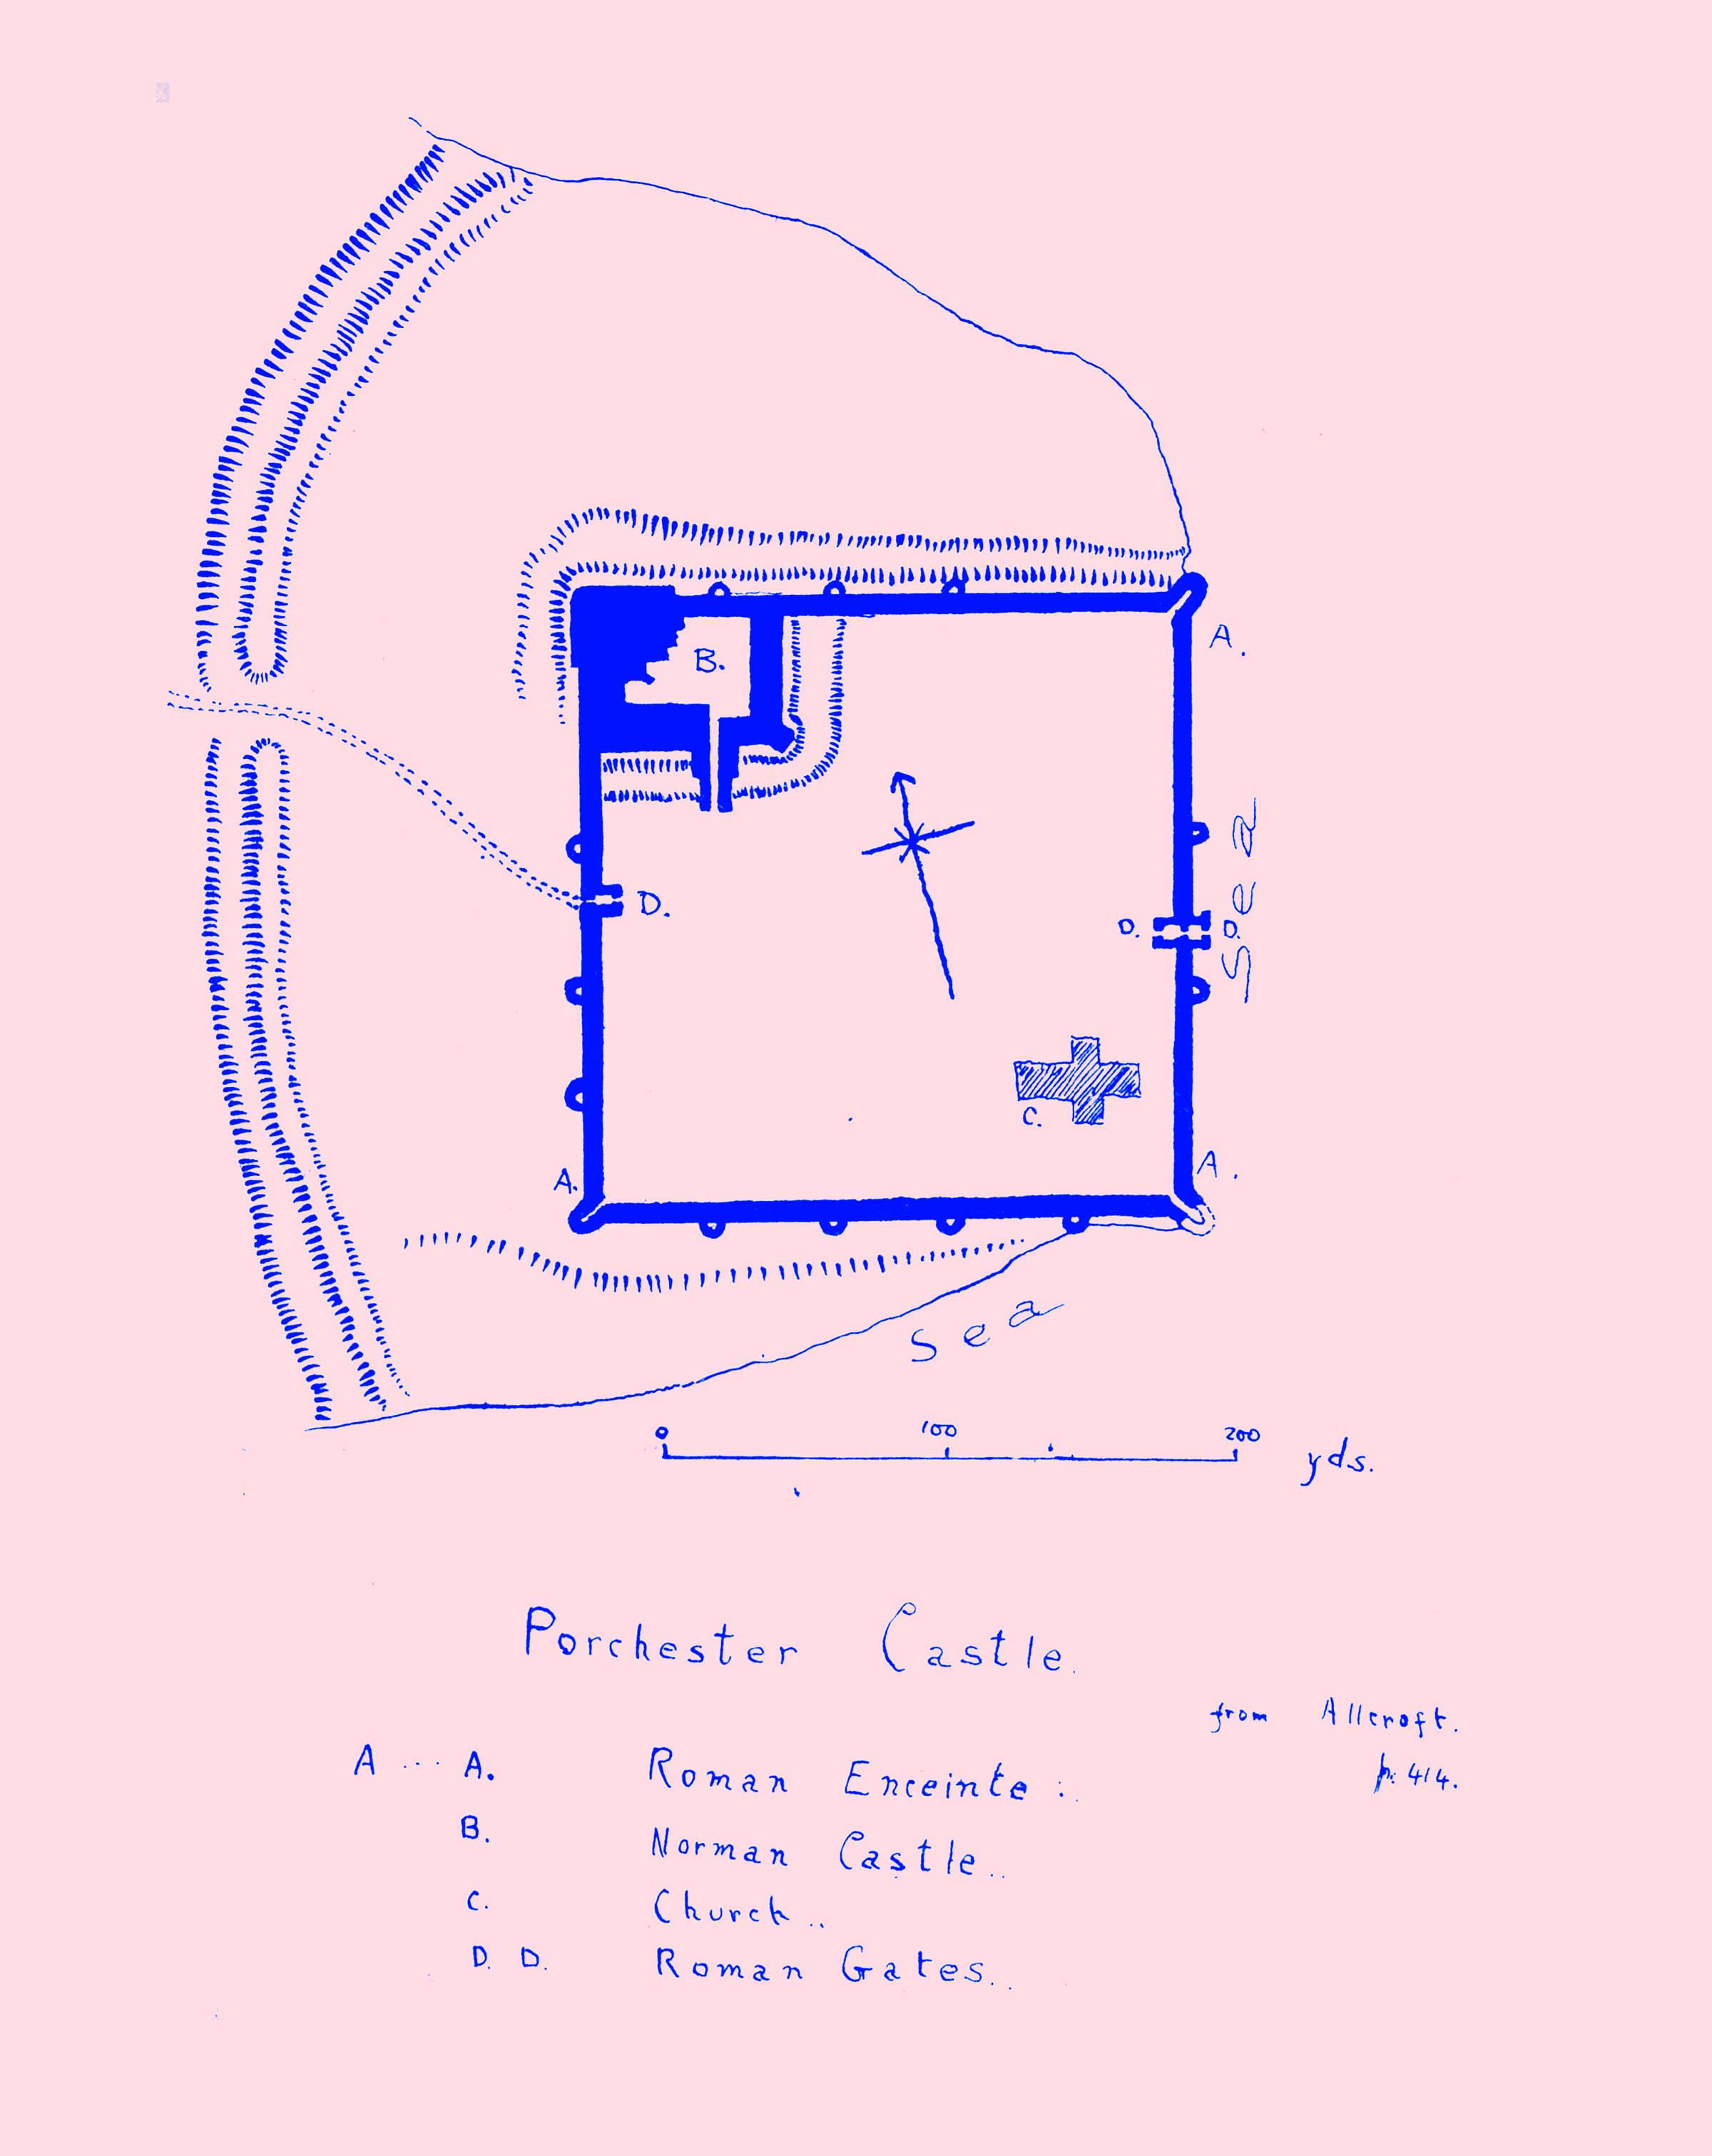 B.
A.
D.
D.
D.
Sea
C.
A.
A.
Sea
0 100 200 yds.
Porchester Castle.
from Allcroft.
p. 414.
A ... A. Roman Enceinte :.
B. Norman Castle..
C. Church..
D. D. Roman Gates..